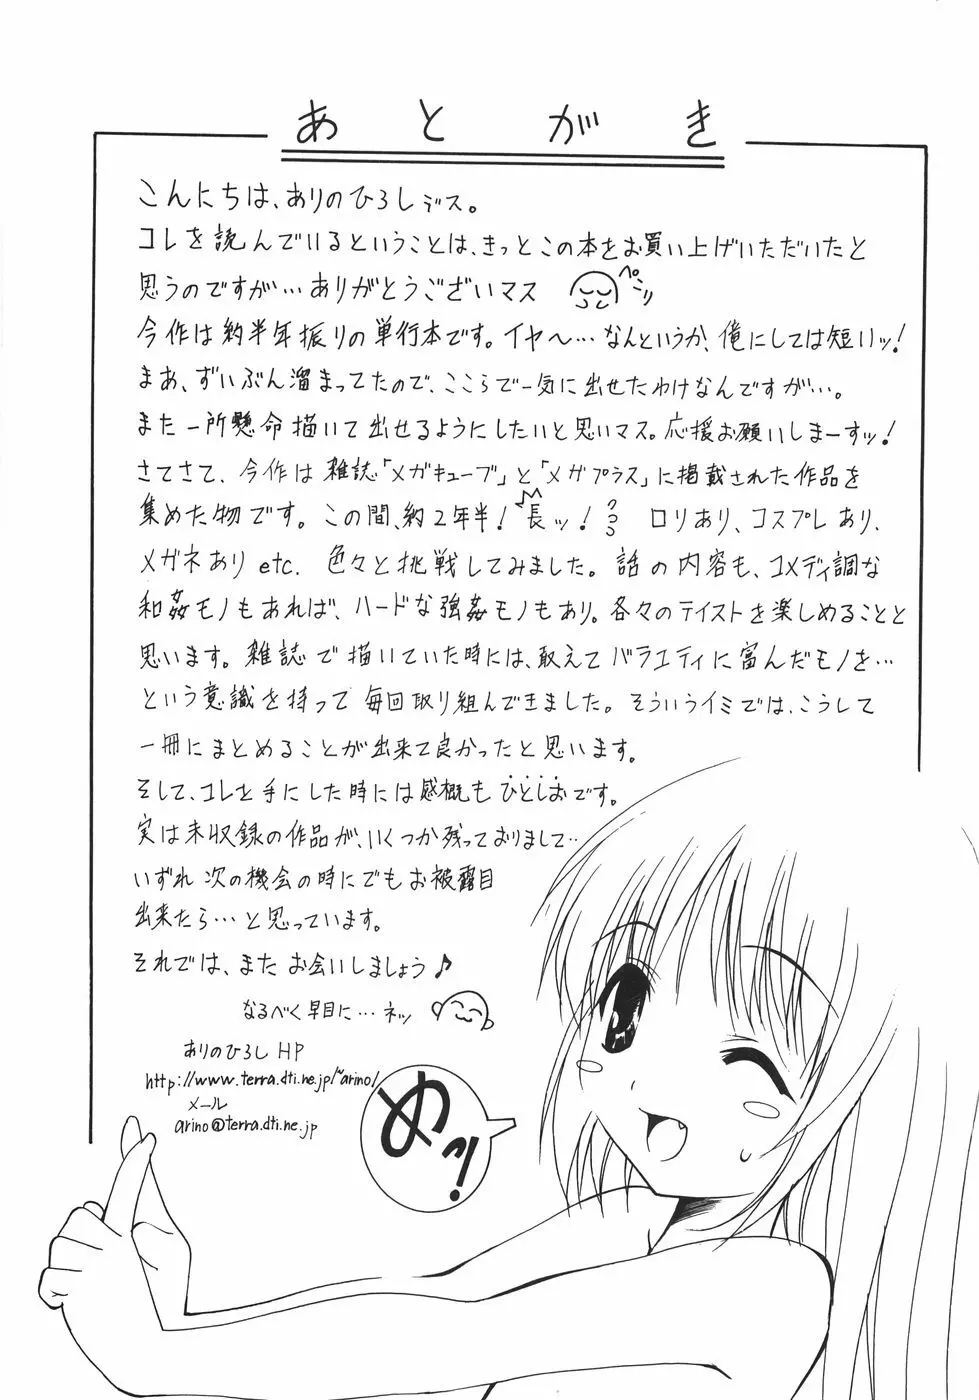 あとがき
こんにちは、ありのひろしデス。
コレを読んでいるということは、きっとこの本をお買い上げいただいたと
思うのですが…ありがとうございマス
ペコッ
今作は約半年振りの単行本です。イヤ〜…なんというか、俺にしては短いッ!
まあ、ずいぶん溜まってたので、ここらで一気に出せたわけなんですが…。
また一所懸命描いて出せるようにしたいと思いマス。応援お願いしまーすッ!
さてさて、今作は雑誌「メガキューブ」と「メガプラス」に掲載された作品を
集めた物です。この間、約2年半!長ッ! ロリあり、コスプレあり、
メガネあり etc. 色々と挑戦してみました。話の内容も、コメディ調な
和姦モノもあれば、ハードな強姦モノもあり。各々のテイストを楽しめることと
思います。雑誌で描いていた時には、敢えてバラエティに富んだモノを…
という意識を持って毎回取り組んできました。そういうイミでは、こうして
一冊にまとめることが出来て良かったと思います。
そして、コレを手にした時には感慨もひとしおです。
実は未収録の作品が、いくつか残っておりまして…
いずれ次の機会の時にでもお披露目
出来たら…と思っています。
それでは、また お会いしましょう♪
なるべく早目に…ネッ
ありのひろし HP
http://www.terra.dti.ne.jp/~arino/
メール
arino@terra.dti.ne.jp
めっ!